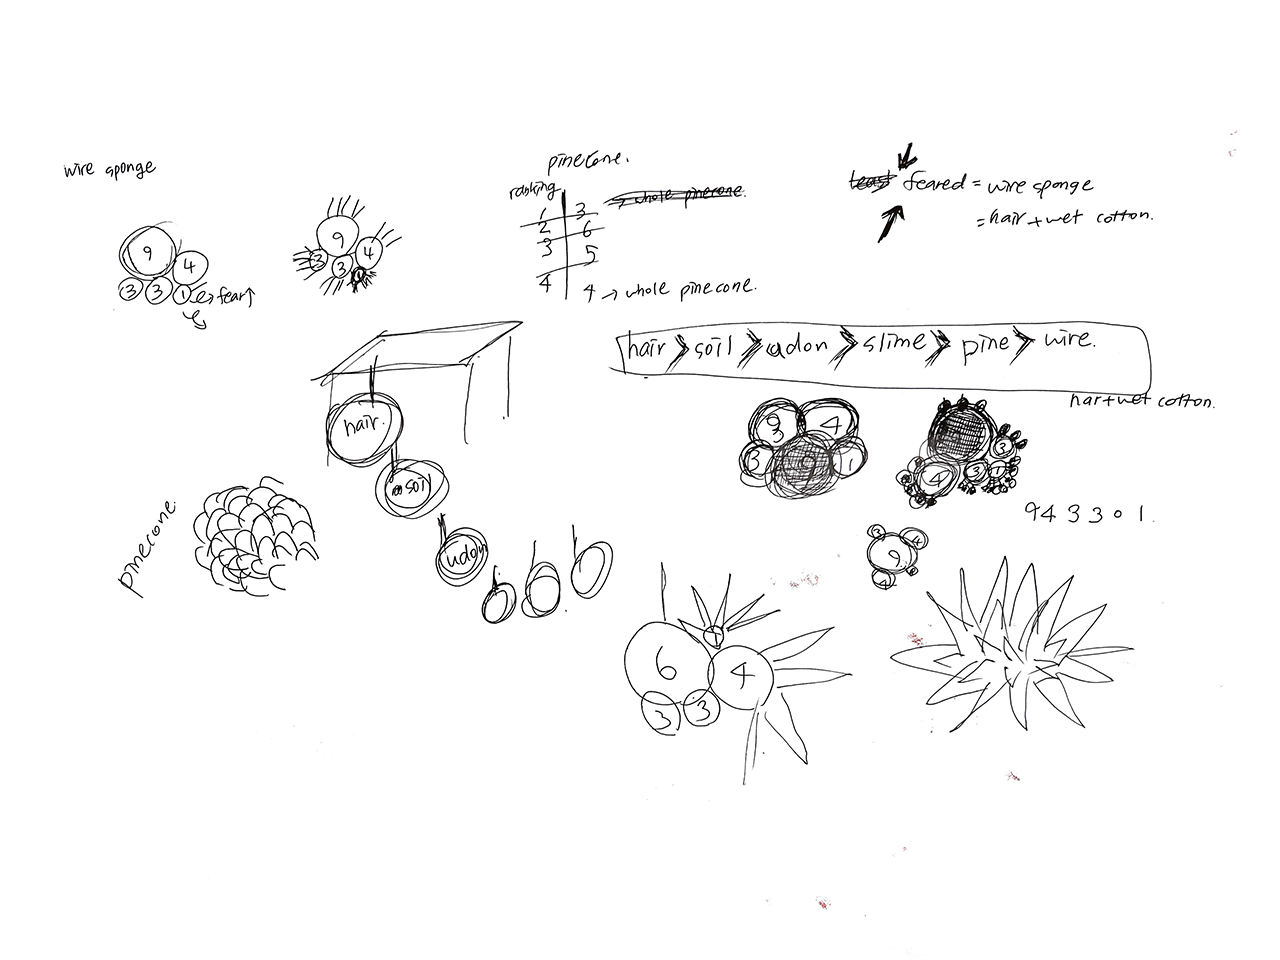 wire sponge
9
4
3 3 1 → fear↑
9
4
3 3
pinecone.
ranking
→ whole pinecone.
1 3
2 6
3 5
4 4 → whole pinecone.
least feared = wire sponge
= hair + wet cotton.
hair > soil > udon > slime > pine > wire.
hair+wet cotton.
hair.
soil
udon
pinecone.
9 4
3
3 9 1
4 3 1 3
9 4 3 3 0 1.
3 4
9
4
1
6 4
3 3